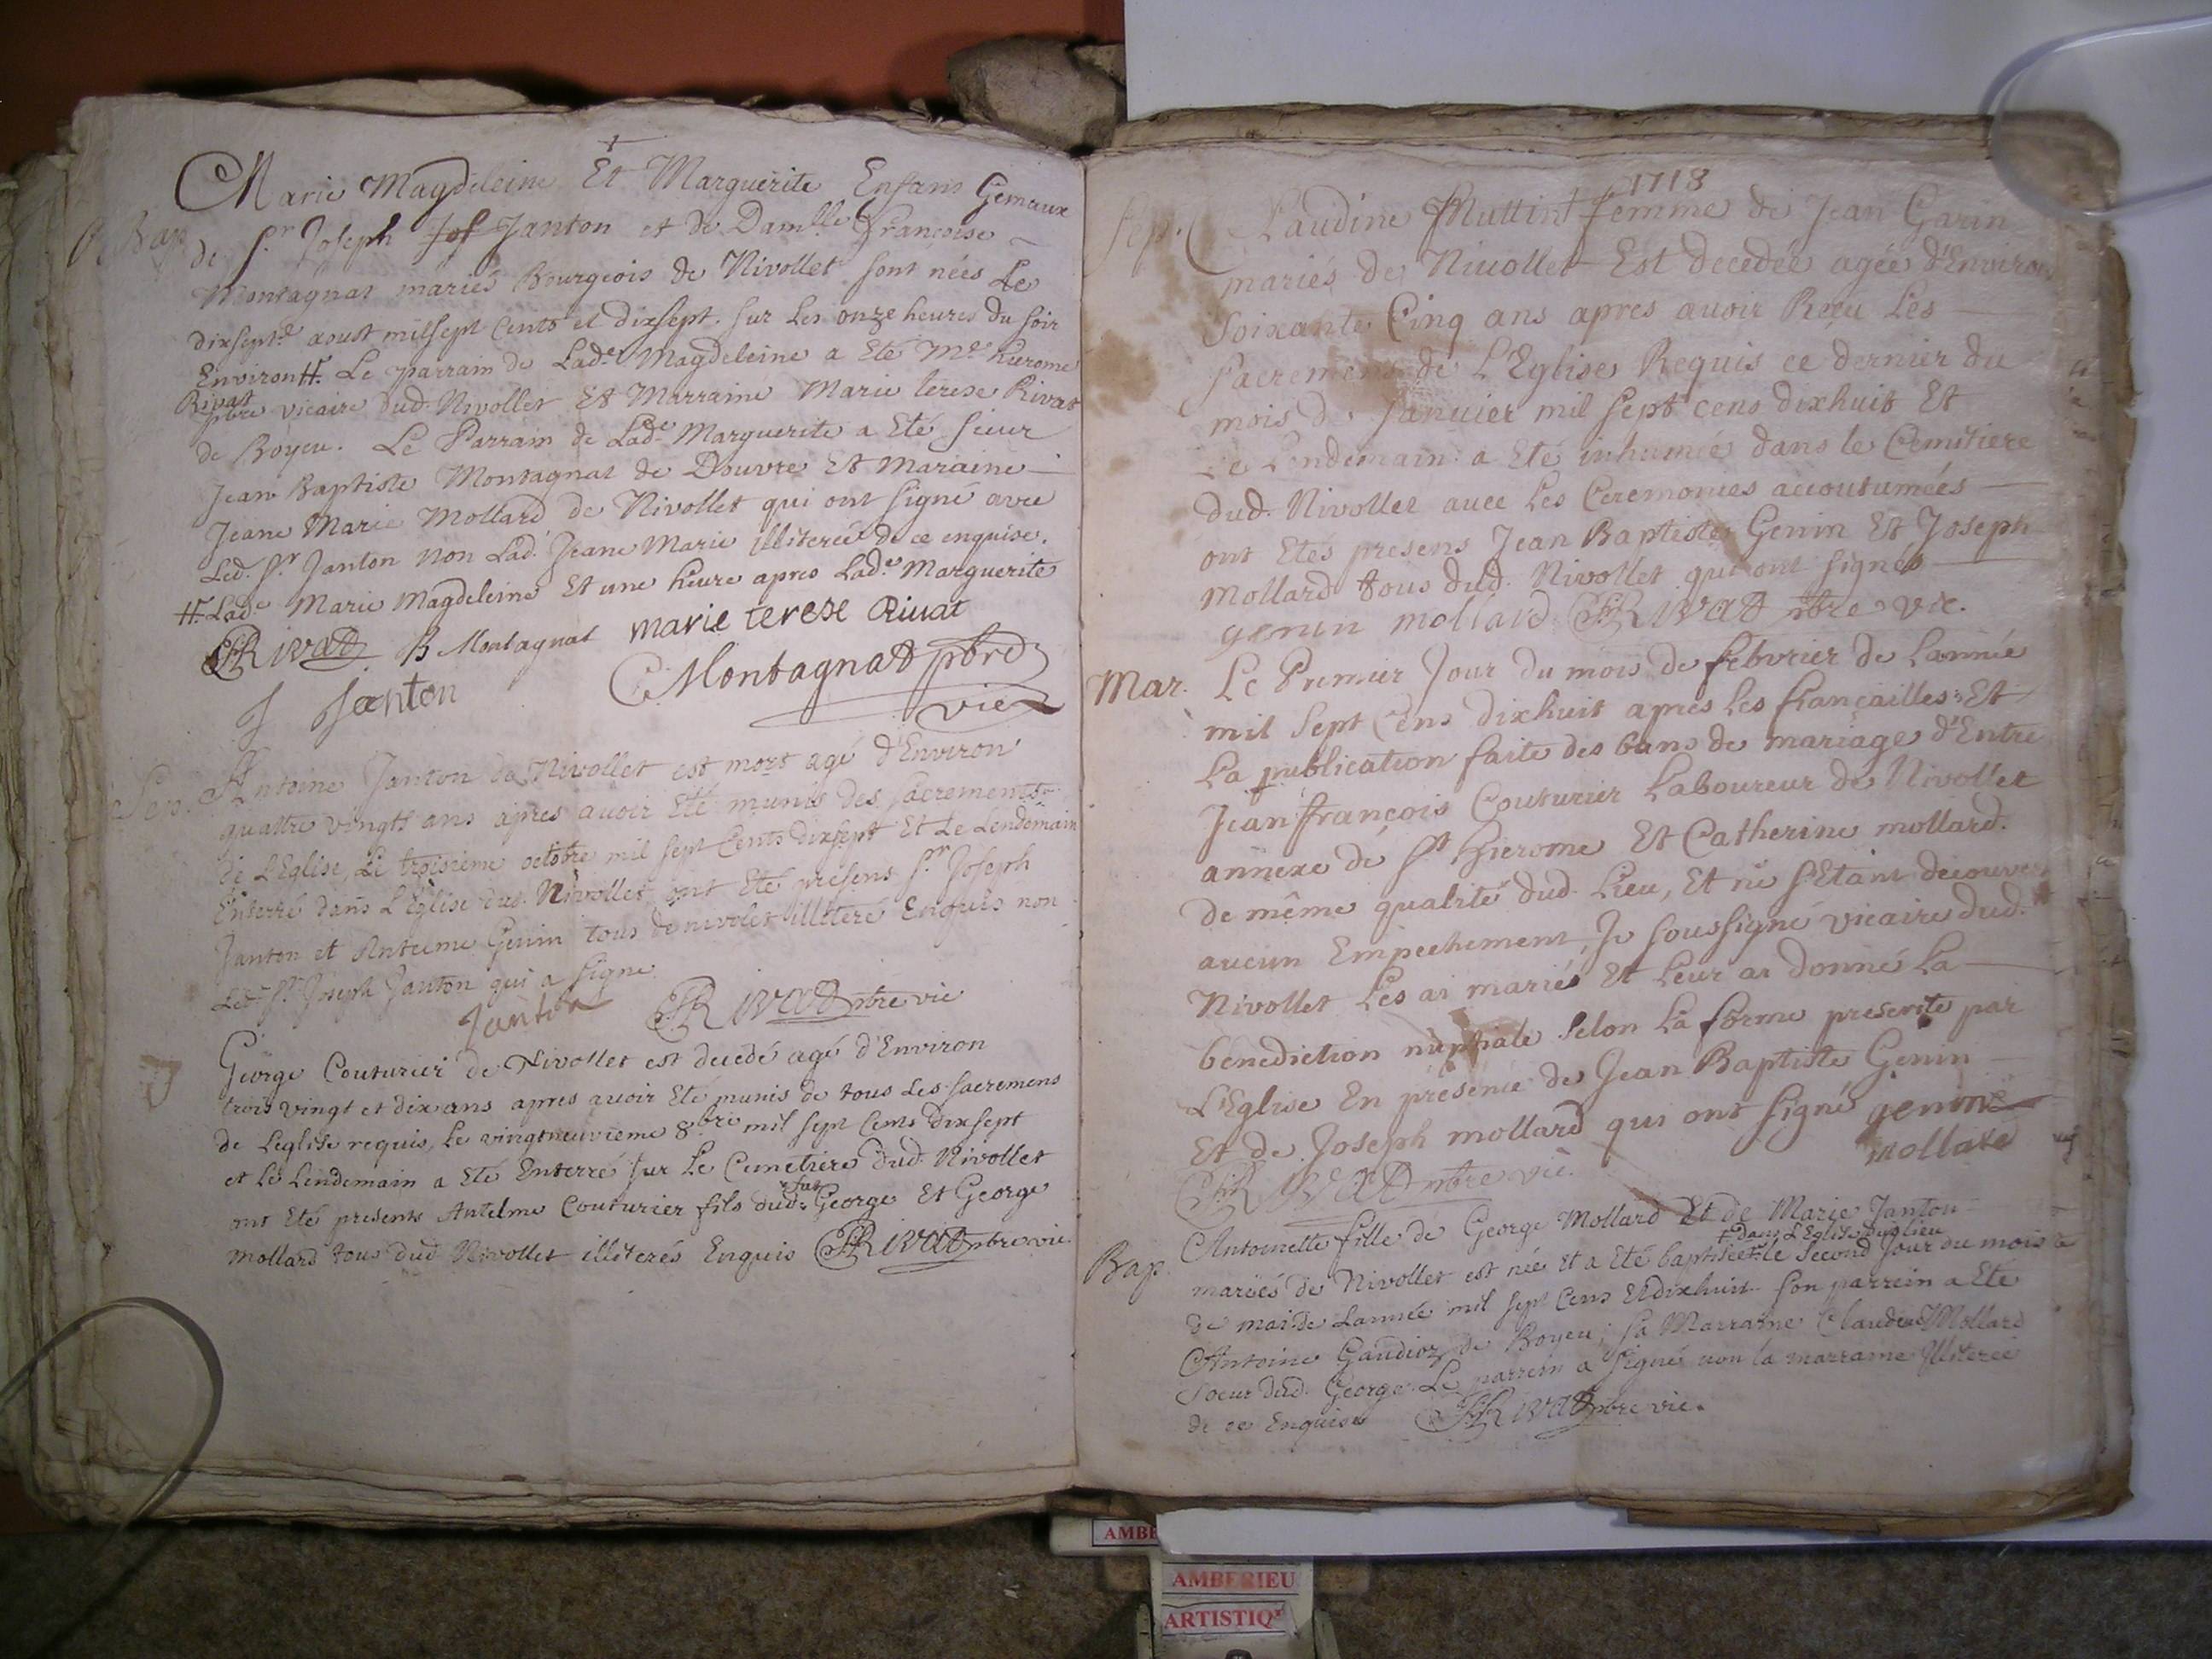 Marie Magdeleine Et Marguerite Enfans Gemeaux
Bap
de Sr. Joseph Jos Janton et de Damlle Françoise
Montagnat mariés Bourgeois de Nivollet sont nées Le
dixsepte aoust milsept Cents et dixsept. sur les onze heures du soir
Environ #. Le parrain de Lade. Magdeleine a Eté Me. hierome
Rivat
pbre vicaire dud. Nivollet Et Marraine Marie terese Rivat
de Boyeu. Le Parrain de Lade. Marguerite a Eté sieur
Jean Baptiste Montagnat de Douvre Et Maraine
Jeane Marie Mollard de Nivollet qui ont signé avec
Led. Sr. Janton non Lad. Jeane Marie illiterée de ce enquise.
#. Lade. Marie Magdeleine Et une heure apres Lade. Marguerite
Rivat B Montagnat marie terese Rivat
J Janton C Montagnat pbre
vic
Sep. Antoine Janton de Nivollet est mort agé d'Environ
quattre vingts ans apres avoir Eté munis des sacrements
de L'Eglise, Le troisieme octobre mil sept Cents dixsept Et Le Lendemain
Enterré dans L'Eglise dud. Nivollet, ont Eté présens Sr. Joseph
Janton et Antelme Genin tous de nivolet illiteré Enquis non
Led. Sr. Joseph Janton qui a signé
Janton Rivat pbre vic
George Couturier de Nivollet est decedé agé d'Environ
trois vingt et dix ans apres avoir Eté munis de tous Les sacremens
de Leglise requis, Le vingtneuvieme 8bre mil sept Cents dixsept
et Le Lendemain a Eté Enterré sur Le Cemetiere dud. Nivollet
ont Eté presents Antelme Couturier fils dud. George Et George
Mollard tous dud Nivollet illiterés Enquis Rivat pbre vic.
1718
Sep. Claudine Muttin femme de Jean Garin
mariés de Nivollet Est decedée agée d'Environ
soixante Cinq ans apres avoir Reçu Les
sacremens de L'Eglise Requis ce dernier du
mois de Janvier mil sept cens dixhuit Et
Le Lendemain a Eté inhumée dans le Cemitiere
dud. Nivollet avec Les Ceremonies accoutumées
ont Etés presens Jean Baptiste Genin Et Joseph
Mollard tous dud. Nivollet qui ont signés
genin mollard Rivat pbre vic.
Mar. Le Premier Jour du mois de febvrier de Lannée
mil sept Cens dixhuit apres les fiançailles Et
La publication faite des bans de mariage d'Entre
Jean françois Couturier Laboureur de Nivollet
annexe de St Hierome Et Catherine mollard.
de même qualité dud. Lieu, Et ne s'Etant decouvert
aucun Empechement, Je soussigné vicaire dud.
Nivollet Les ai mariés Et Leur ai donné La
benediction nuptiale selon La forme prescrite par
L'Eglise En présence de Jean Baptiste Genin
Et de Joseph mollard qui ont signé genin
mollard
Rivat pbre vic.
Antoinette fille de George Mollard Et de Marie Janton
† dans L'Eglise dud. lieu
Bap. mariés de Nivollet est née Et a Eté baptisée† le second Jour du mois
de mai de Lannée mil sept Cens Et dixhuit. Son parrein a Eté
Antoine Gaudioz de Boyeu; sa Marraine Claudine Mollard
soeur dud. George. Le parrein a signé non la marraine Illiterée
de ce Enquise Rivat pbre vic.
AMBE
AMBERIEU
ARTISTIQ